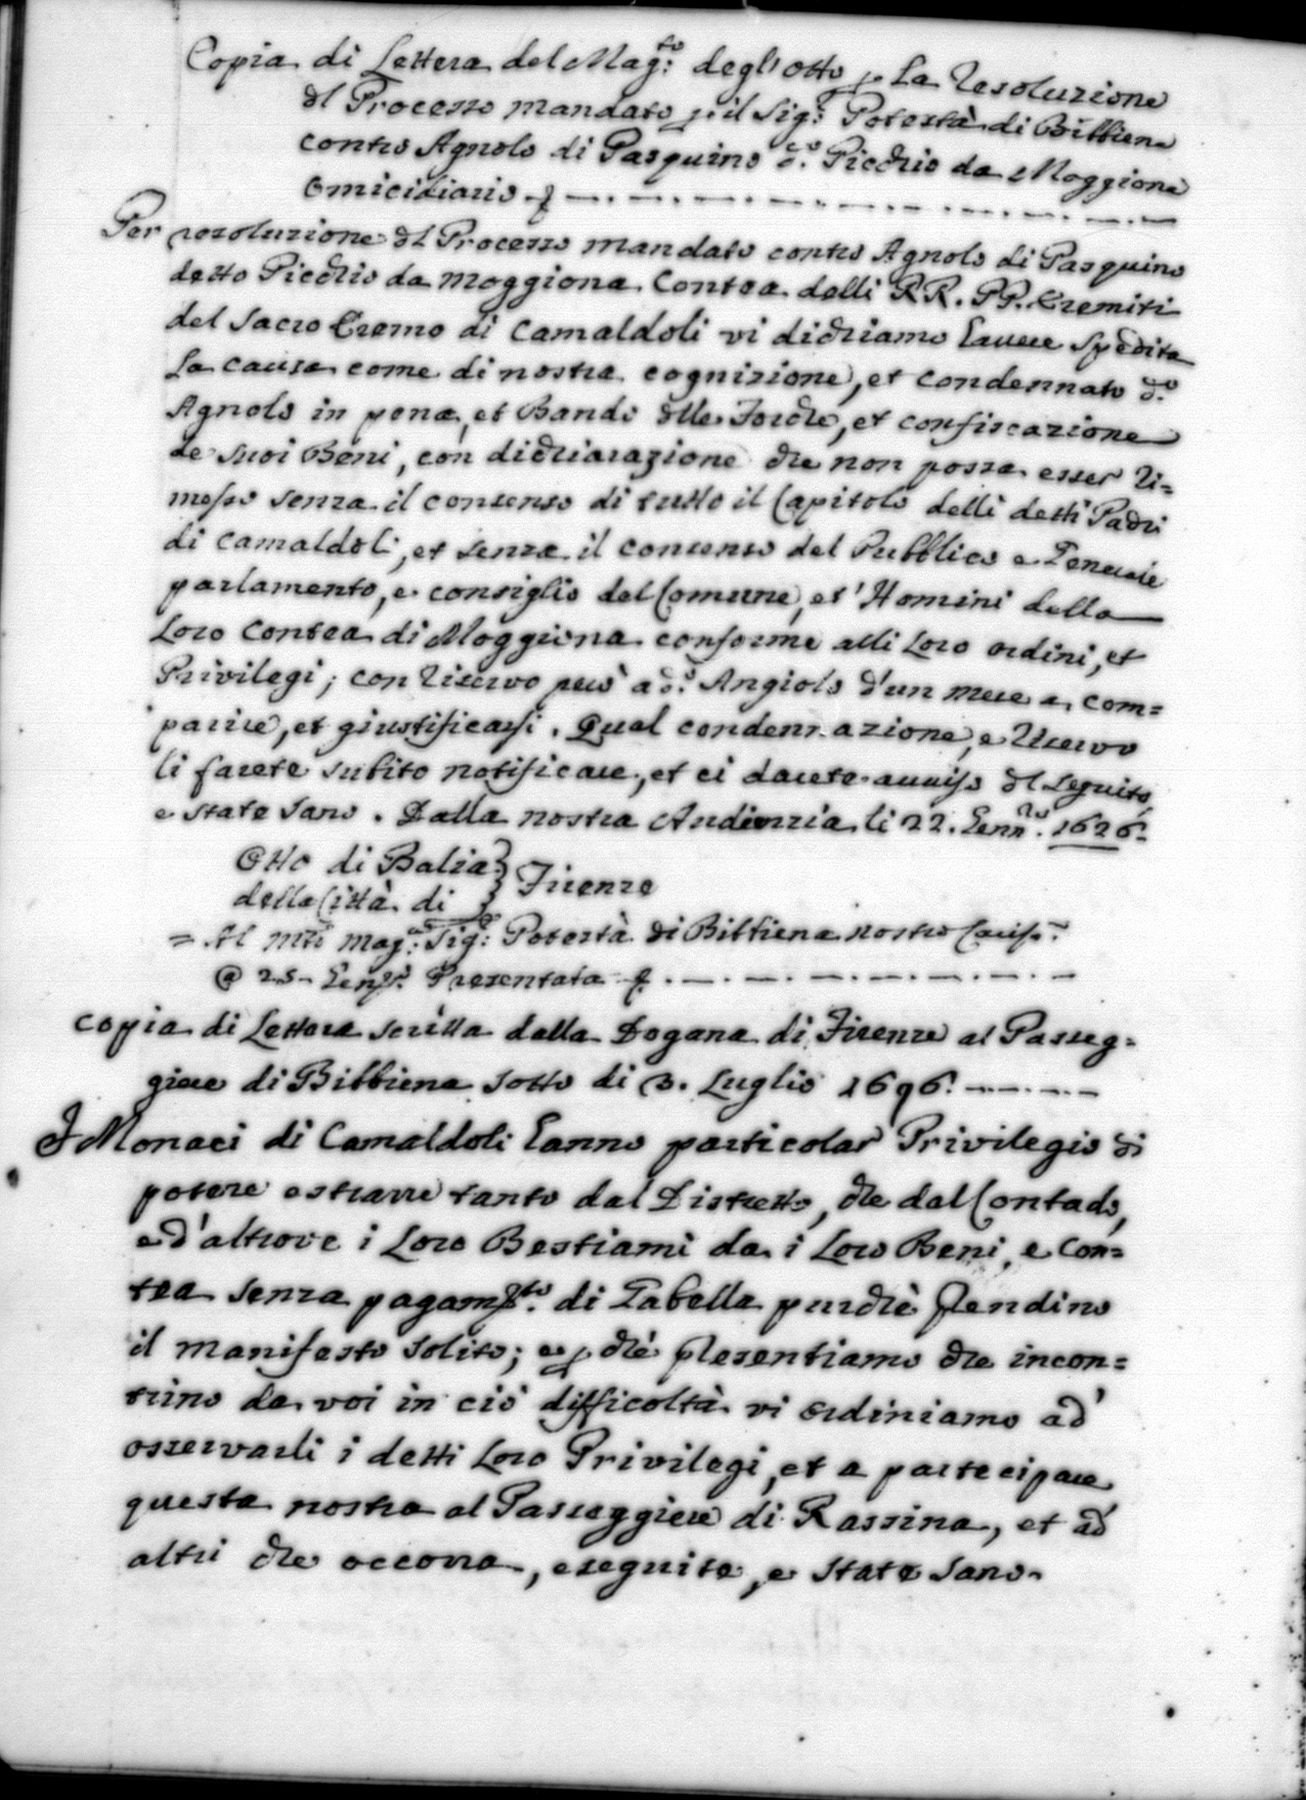 Copia di Lettera del Mag:to degl'Otto p. La resoluzione
dl Processo mandato p. il Sig:r Potestà di Bibbiena
contro Agnolo di Pasquino d.o Picchio da Moggiona
Omicidiario
Per resoluzione dl Processo mandato contro Agnolo di Pasquino
detto Picchio da Moggiona Contea delli RR. PP. Eremiti
del Sacro Eremo di Camaldoli vi dichiamo hauere spedita
La causa come di nostra cognizione, et condennato d.o
Agnolo in pena, et Bando dlle Forche, et confiscazione
de suoi Beni, con dichiarazione che non possa esser ri=
messo senza il consenso di tutto il Capitolo delli detti Padri
di Camaldoli, et senza il consenso del Pubblico e Generale
parlamento, e consiglio del Comune, et' Homini della
Loro Contea di Moggiona conforme alli Loro ordini, et
Privilegi; con riservo però a d.o Angiolo d'un mese a com=
parire, et giustificarsi. Qual condennazione, e riservo
li farete subito notificare, et ci darete avviso dl seguito,
e state sano. Dalla nostra Audienzia li 22. Genn:ro 1626.
Otto di Balia
della Città di } Firenze
= Al mto mag:co Sig:re Potestà di Bibbiena nostro Cariss:
@ 25 Genn:o Presentata
Copia di Lettera scritta dalla Dogana di Firenze al Passeg=
giere di Bibbiena sotto di 3. Luglio 1696.
I Monaci di Camaldoli hanno particolar Privilegio di
potere estrarre tanto dal Distretto, che dal Contado,
e d'altrove i Loro Bestiami da i Loro Beni, e Con=
tea senza pagam:to di Gabella purchè prendino
il manifesto solito; e p. chè presentiamo che incon=
trino da voi in ciò difficoltà vi ordiniamo ad'
osservarli i detti Loro Privilegi, et a partecipare
questa nostra al Passeggiere di Rassina, et ad'
altri che occorra, eseguite, e state sano.